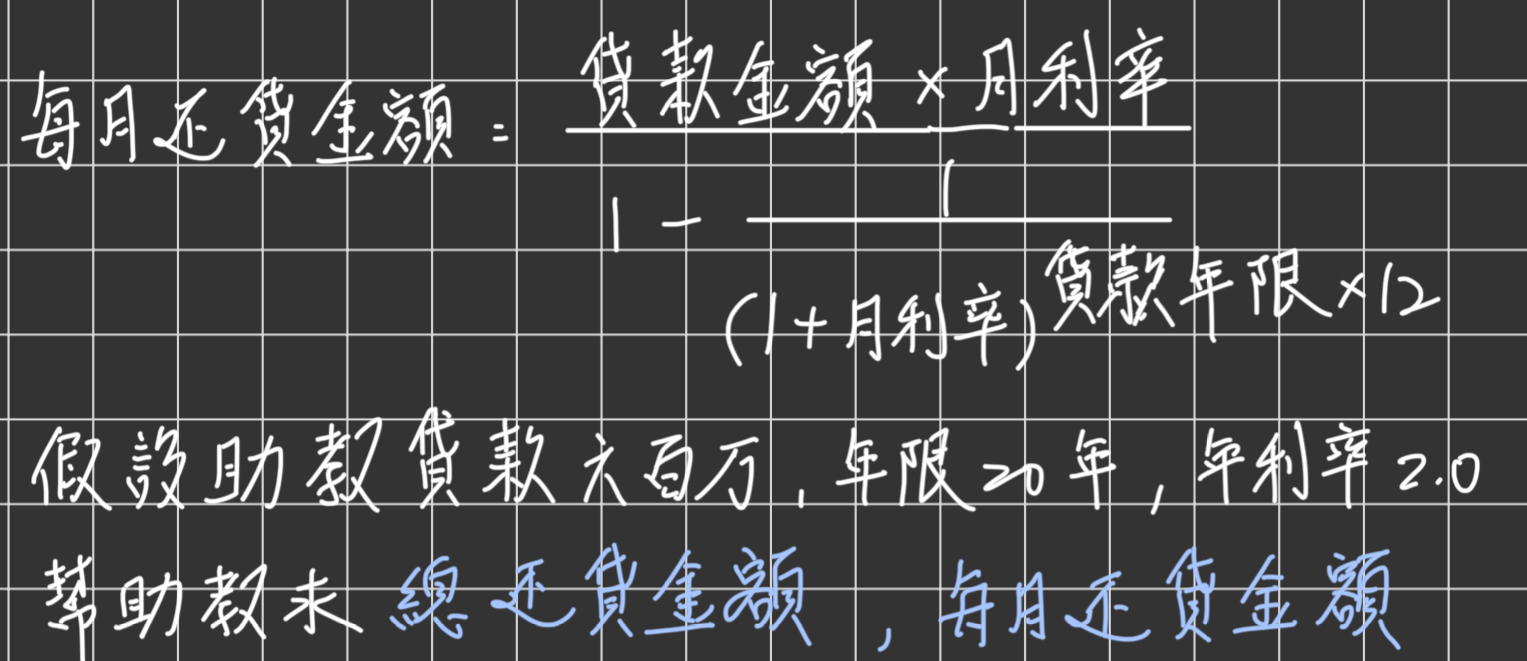 每月还貸金額 = 貸款金額 × 月利率
1 - 1
(1+月利率)貸款年限×12
假設助教貸款六百万, 年限20年, 年利率2.0
幫助教求 總还貸金額, 每月还貸金額